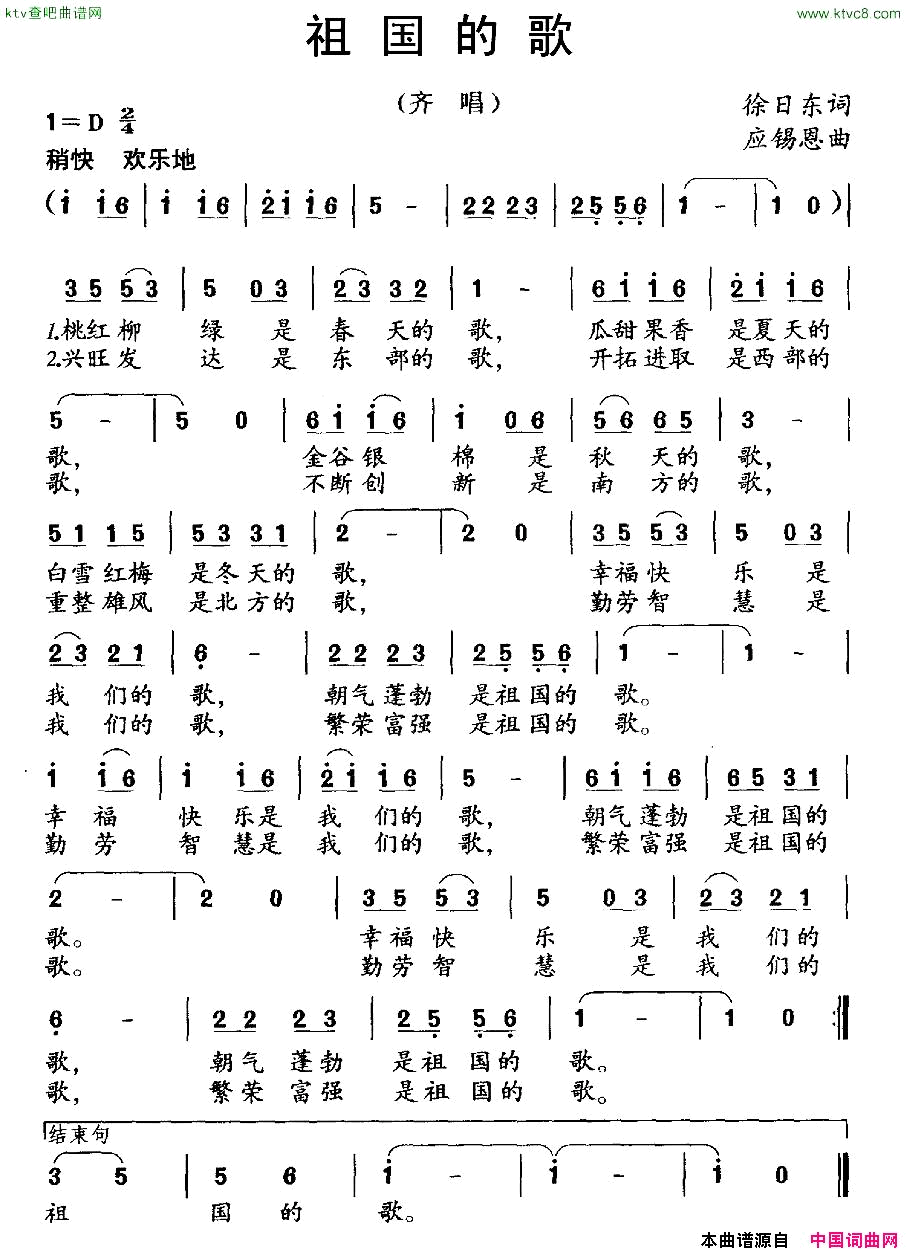 ktv查吧曲谱网 www.ktvc8.com
祖国的歌
(齐 唱)
1=D 2/4 徐日东词
稍快 欢乐地 应锡恩曲
(i i6 | i i6 | 2i i6 | 5 - | 22 23 | 25 56 | 1 - | 1 0) |
35 53 | 5 03 | 23 32 | 1 - | 6i i6 | 2i i6 |
1.桃红柳 绿 是 春 天的 歌, 瓜甜果香 是夏天的
2.兴旺发 达 是 东 部的 歌, 开拓进取 是西部的
5 - | 5 0 | 6i i6 | i 06 | 56 65 | 3 - |
歌, 金谷银 棉 是 秋 天的 歌,
歌, 不断创 新 是 南 方的 歌,
51 15 | 53 31 | 2 - | 2 0 | 35 53 | 5 03 |
白雪红梅 是冬天的 歌, 幸福快 乐 是
重整雄风 是北方的 歌, 勤劳智 慧 是
23 21 | 6 - | 22 23 | 25 56 | 1 - | 1 - |
我 们的 歌, 朝气蓬勃 是祖国的 歌。
我 们的 歌, 繁荣富强 是祖国的 歌。
i i6 | i i6 | 2i i6 | 5 - | 6i i6 | 65 31 |
幸 福 快 乐是 我 们的 歌, 朝气蓬勃 是祖国的
勤 劳 智 慧是 我 们的 歌, 繁荣富强 是祖国的
2 - | 2 0 | 35 53 | 5 03 | 23 21 |
歌。 幸福快 乐 是 我 们的
歌。 勤劳智 慧 是 我 们的
6 - | 22 23 | 25 56 | 1 - | 1 0 :||
歌, 朝气蓬勃 是祖国的 歌。
歌, 繁荣富强 是祖国的 歌。
结束句
3 5 | 5 6 | i - | i - | i 0 ||
祖 国 的 歌。
本曲谱源自 中国词曲网